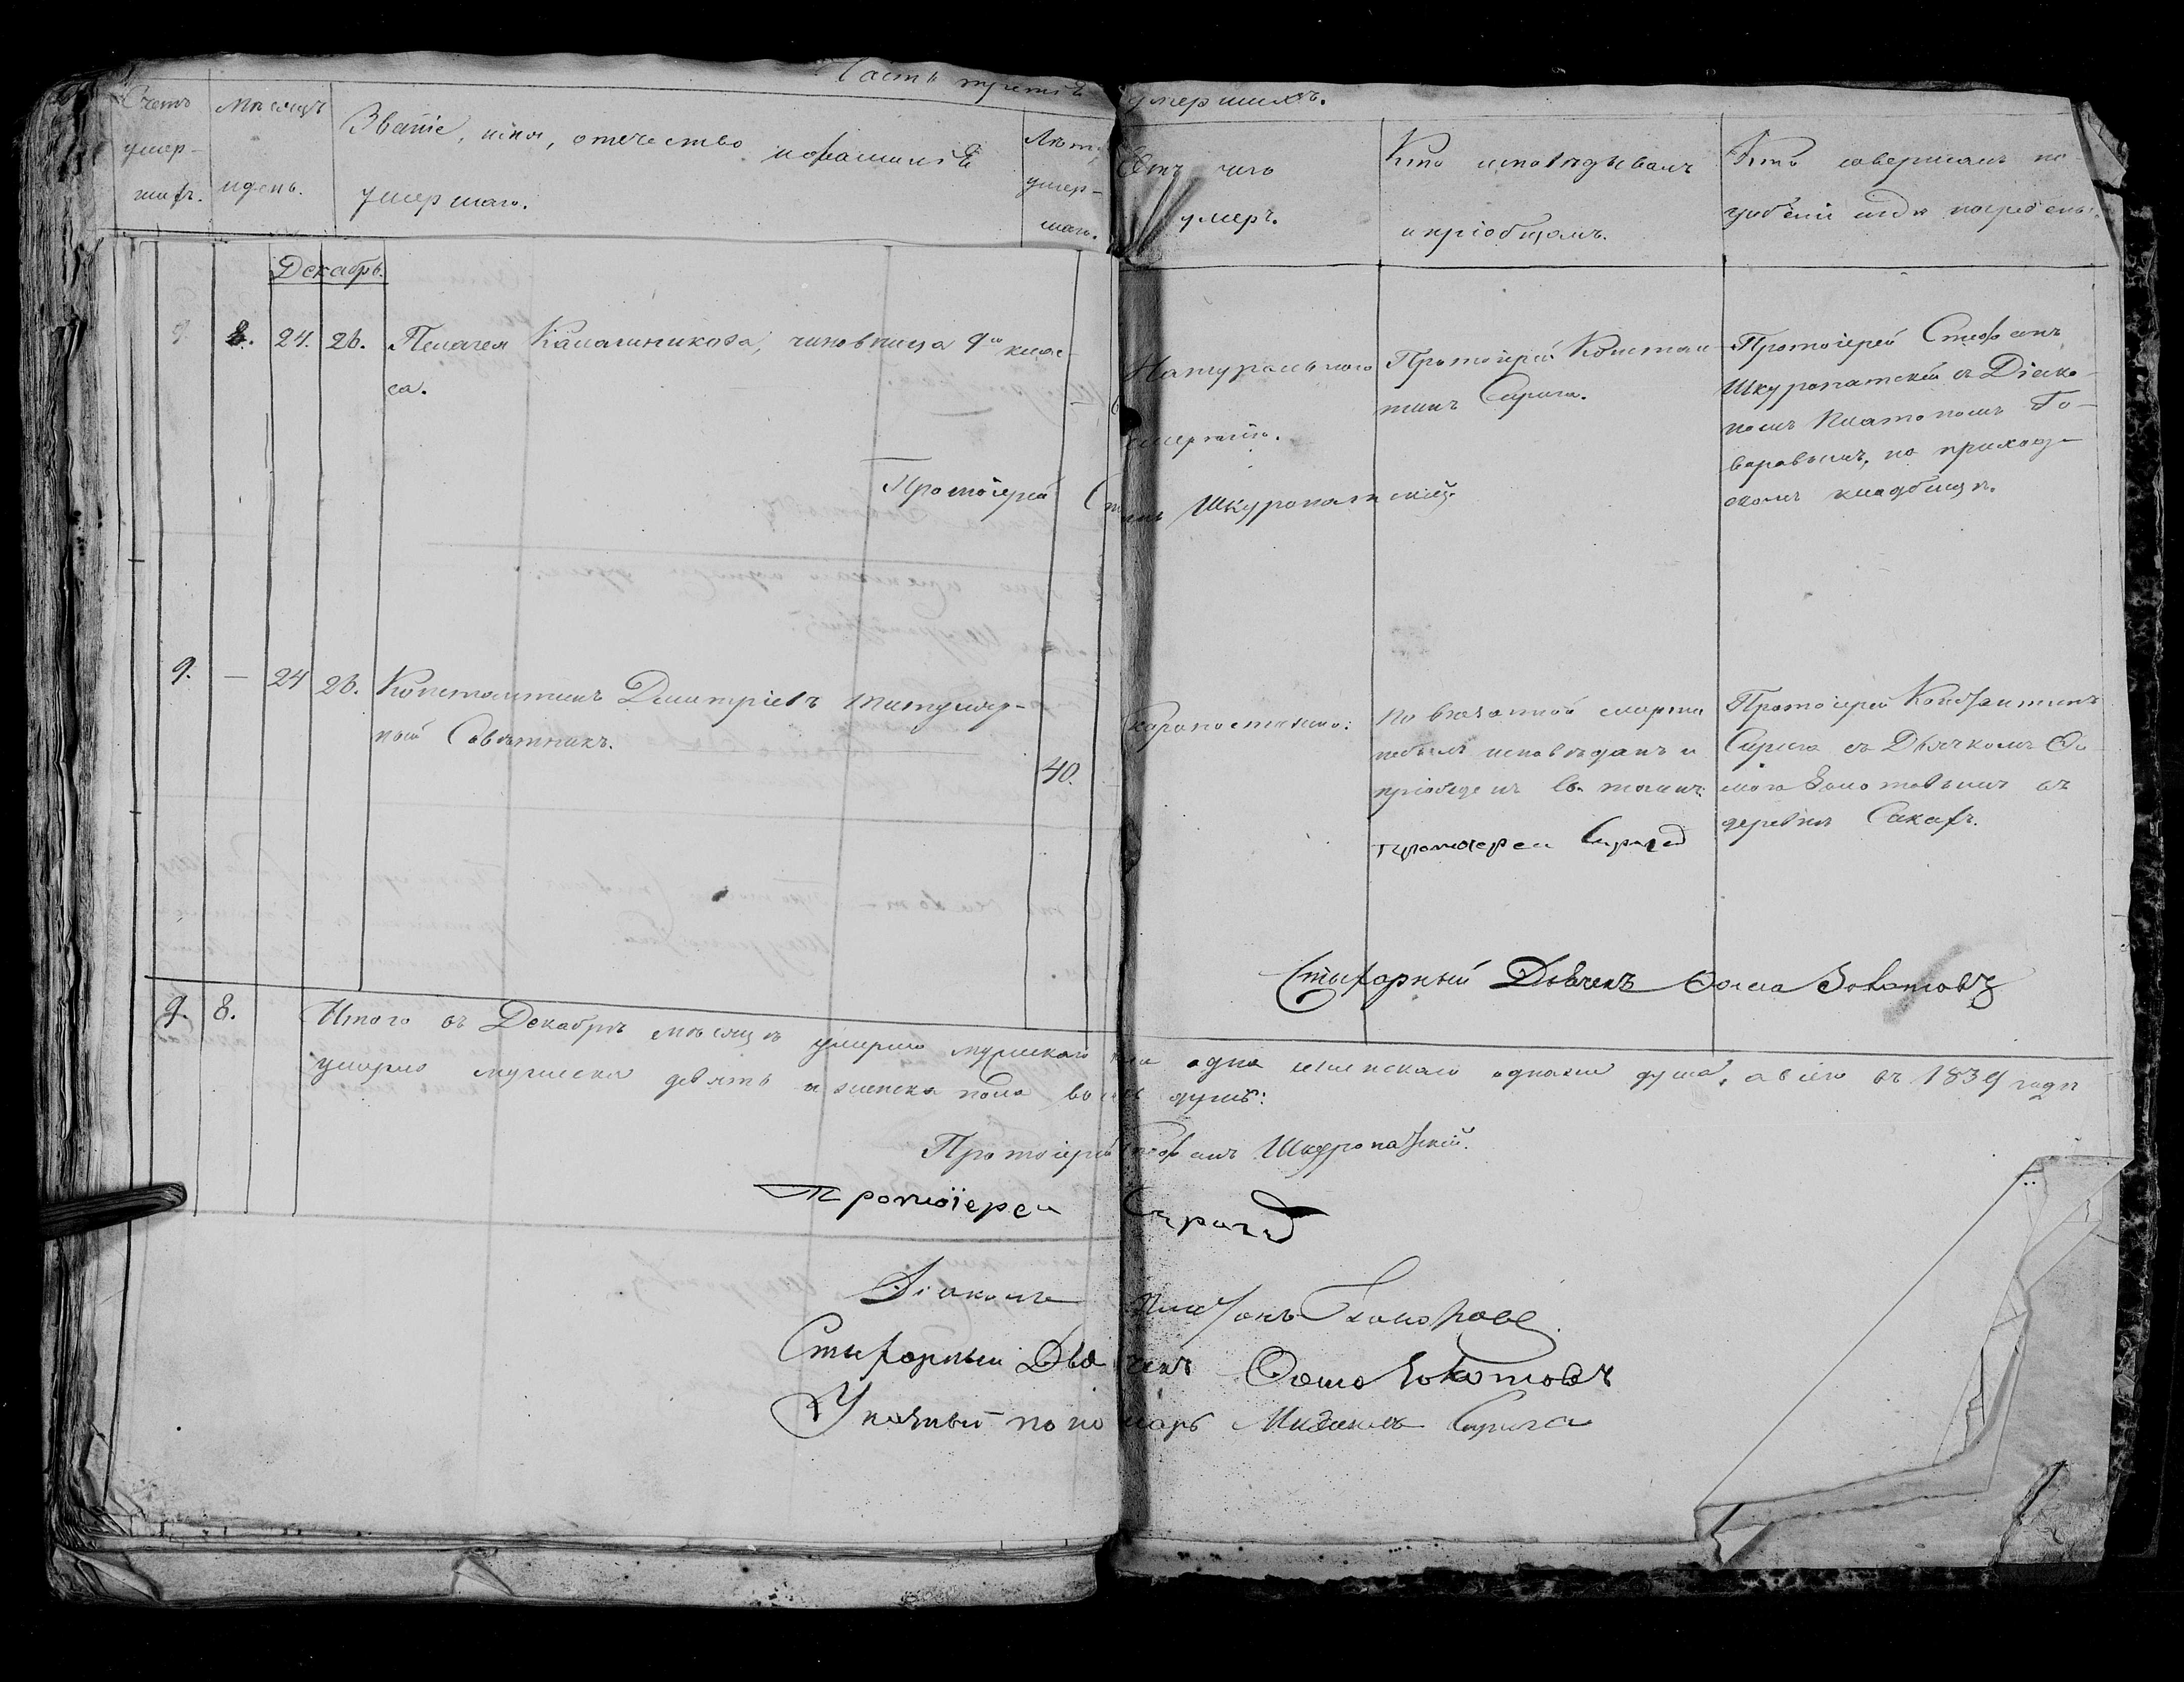 Часть третія
умершихъ.
Счетъ умер-шихъ.
Мѣсяцъ и день.
Званіе, имя, отечество и фамилія умершаго.
Лѣта умер-шаго.
Отъ чего умеръ.
Кто исповѣдывалъ и пріобщалъ.
Кто совершалъ по-гребеніе и гдѣ погребены.
Декабрь.
9. 8. 24. 26. Пелагея Калашникова, чиновница 9го клас-
са.
Натуральною
смертію.
Протоіерей Констан-
тинъ Сирига.
Протоіерей Стефанъ
Шкуропатскій съ Діако-
номъ Платономъ
по приход-
скомъ кладбищѣ.
Протоіерей Стефанъ Шкуропатскій.
9. — 24 26. Константинъ Дмитріевъ титуляр-
ный Совѣтникъ.
40.
Скоропостижно:
По внезапной смерти
небылъ исповѣданъ и
пріобщенъ Св. таинъ:
Протоіерей Сирига
Протоіерей Константинъ
Сирига съ Дьячкомъ Ѳо-
мою Золотовымъ въ
деревнѣ Сакахъ.
Стихарный Дьячекъ Ѳома Золотовъ
9. 8. Итого въ Декабрѣ мѣсяцѣ умерло мужскаго пола одна женскаго одна же душа, а всего въ 1839 годѣ
умерло мужеска девять и женска пола восемь душъ:
Протоіерей Стефанъ Шкуропатскій.
Протоіерей Сирига
Діаконъ Платонъ
Стихарный Дьячекъ Ѳома Золотовъ
Указный пономарь Михаилъ Сирига